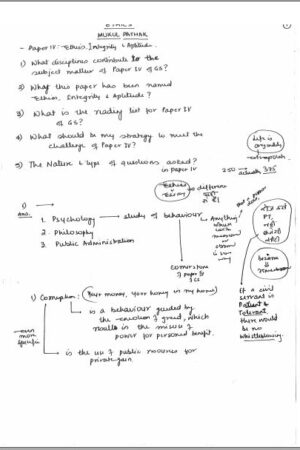 ETHICS
MUKUL PATHAK
- Paper IV: Ethics, Integrity & Aptitude.
1) What disciplines contribute to the
subject matter of Paper IV of GS?
2) Why this paper has been named
Ethics, Integrity & Aptitude?
3) What is the reading list for Paper IV
of GS?
4) What should be my strategy to meet the
challenge of Paper IV?
Life is
5) The Nature & type of questions asked?
in paper IV
250
Ethics
Essay
difference
1)
Ans.
1. Psychology
study of behaviour
2. Philosophy
3. Public Administration
Anything
which
is
cornerstone
of paper
GS
1) Corruption: (Your money, your honey is my honey)
is a behaviour guided by
the emotion of greed, which
results in the misuse of
power for personal benefit.
more
specific
is the use of public resources for
private gain.
If a civil
servant is
Patient &
Tolerant,
there would
be no
whistleblowing.